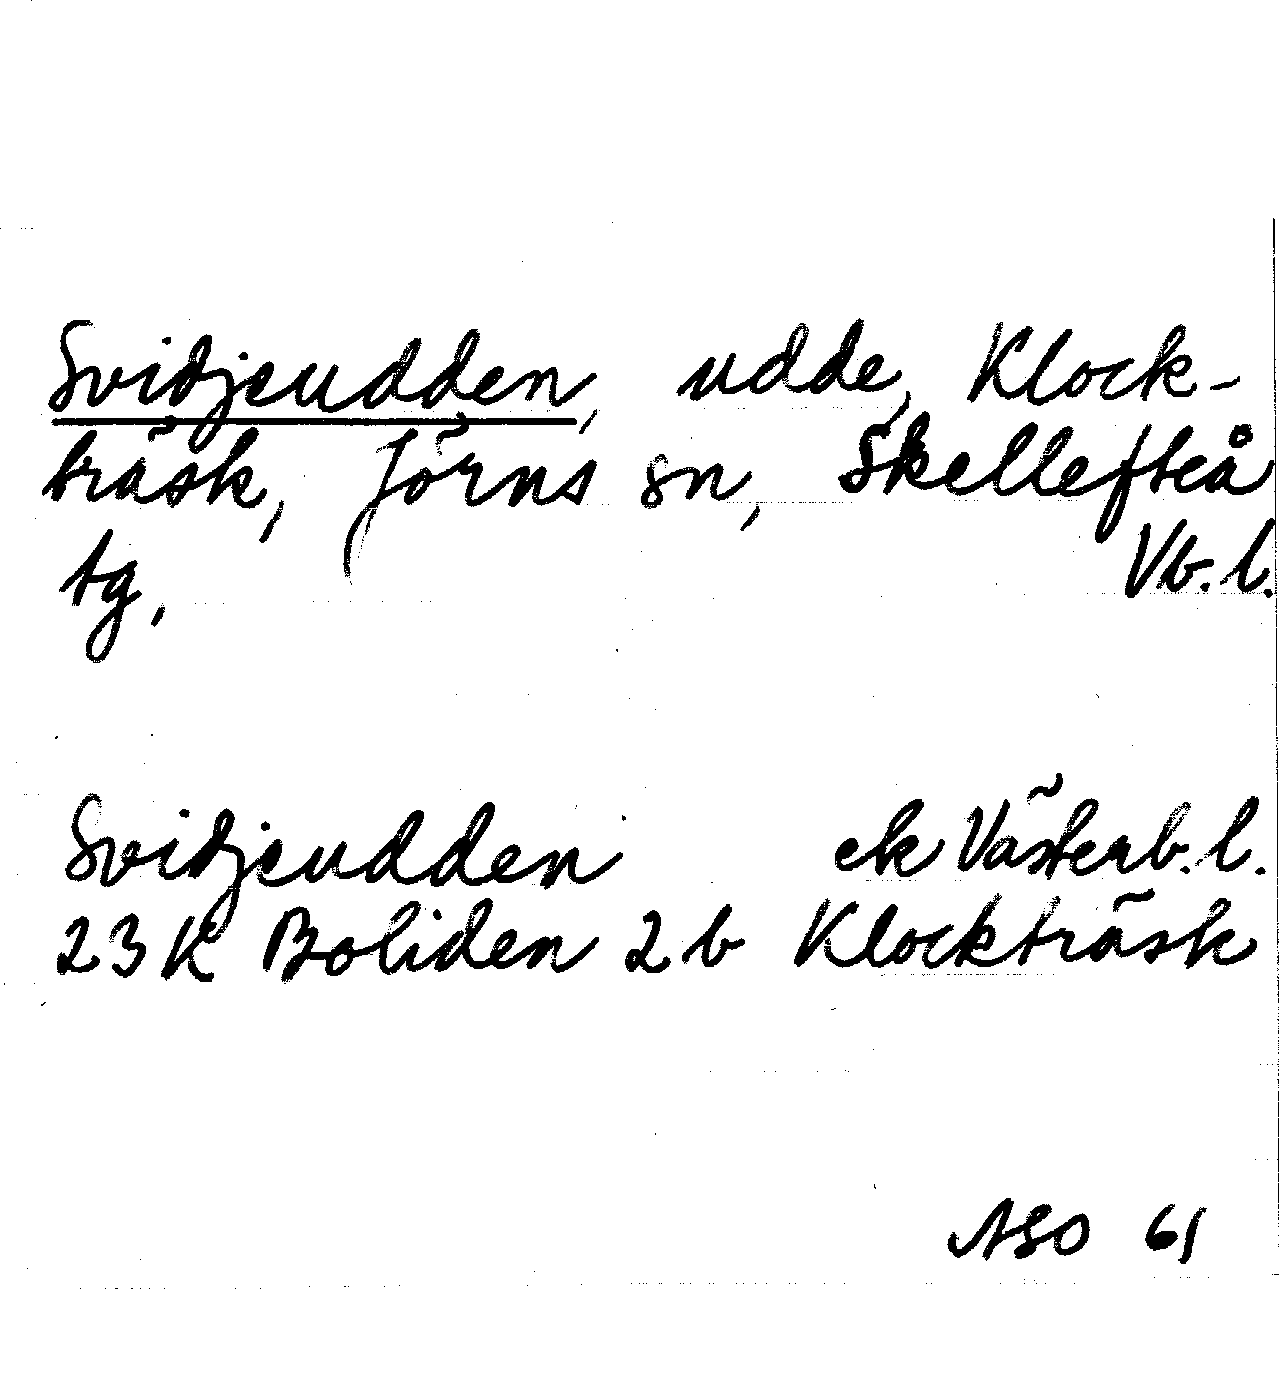 Svidjeudden, udde, Klock-
träsk, Jörns sn, Skellefteå
tg, Vb.l.
Svidjeudden ek Västerb.l.
23K Boliden 2b Klockträsk
ASO 61